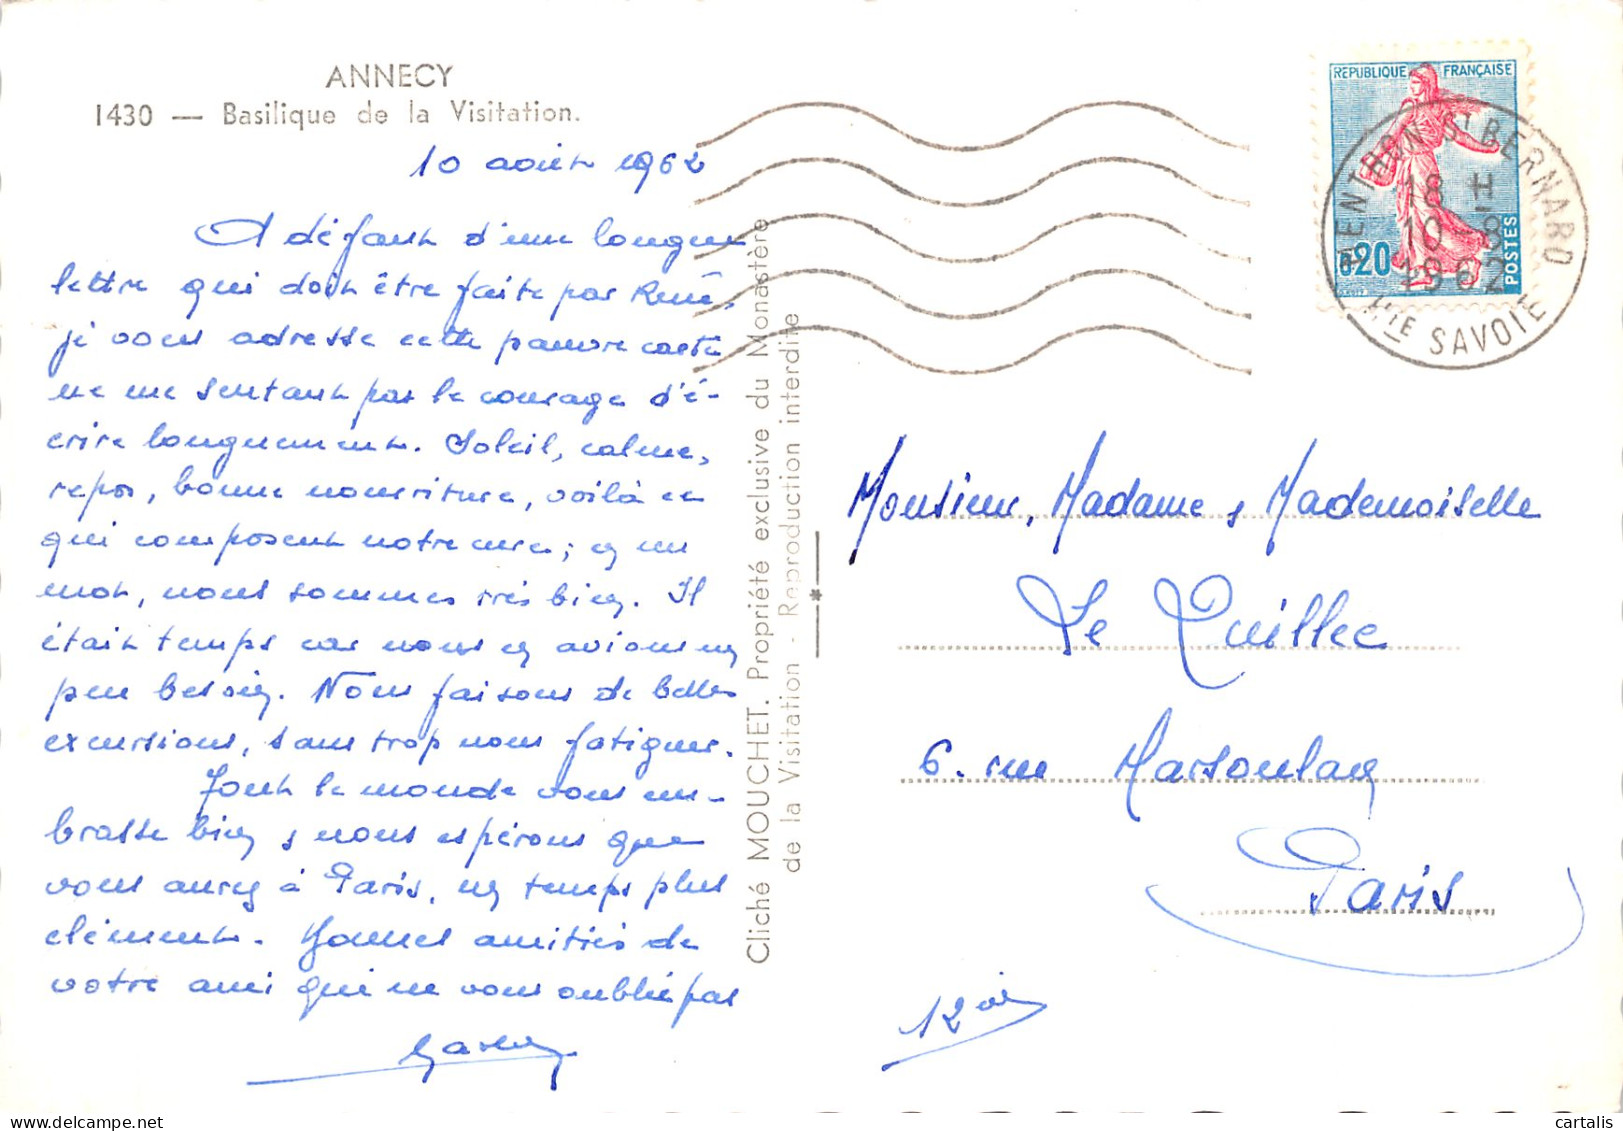 ANNECY
1430 — Basilique de la Visitation.
10 août 1962
A défaut d'une longue
lettre qui doit être faite par René,
je vous adresse cette pauvre carte
ne me sentant pas le courage d'é-
crire longuement. Soleil, calme,
repos, bonne nourriture, voilà ce
qui composent notre cure ; en un
mot, nous sommes très bien. Il
était temps car nous en avions un
peu besoin. Nous faisons de belles
excursions, sans trop nous fatiguer.
Tout le monde vous em-
brasse bien & nous espérons que
vous aurez à Paris, un temps plus
clément. Bonnes amitiés de
votre ami qui ne vous oublie pas
Cliché MOUCHET. Propriété exclusive du Monastère
de la Visitation - Reproduction interdite
REPUBLIQUE FRANÇAISE
0,20
POSTES
MENTHON ST BERNARD
18 H
10-8
1962
HTE SAVOIE
Monsieur, Madame & Mademoiselle
Le Quillec
6. rue Marsoulan
Paris
12e
cartalis